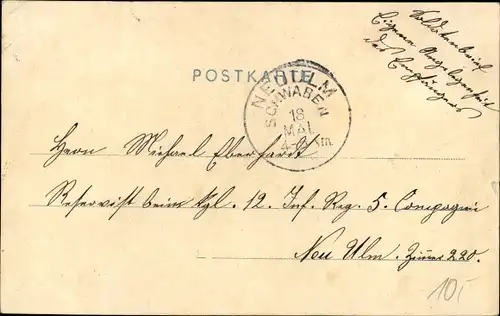 Soldatenbrief
Eigene Angelegenheit
des Empfängers
POSTKARTE
NEU-ULM
SCHWABEN
18
MAI
4-5 Nm
Herrn Michael Eberhardt
Reservist beim Kgl. 12. Inf. Reg. 5. Compagnie
Neu Ulm. Zimmer 220.
10,-